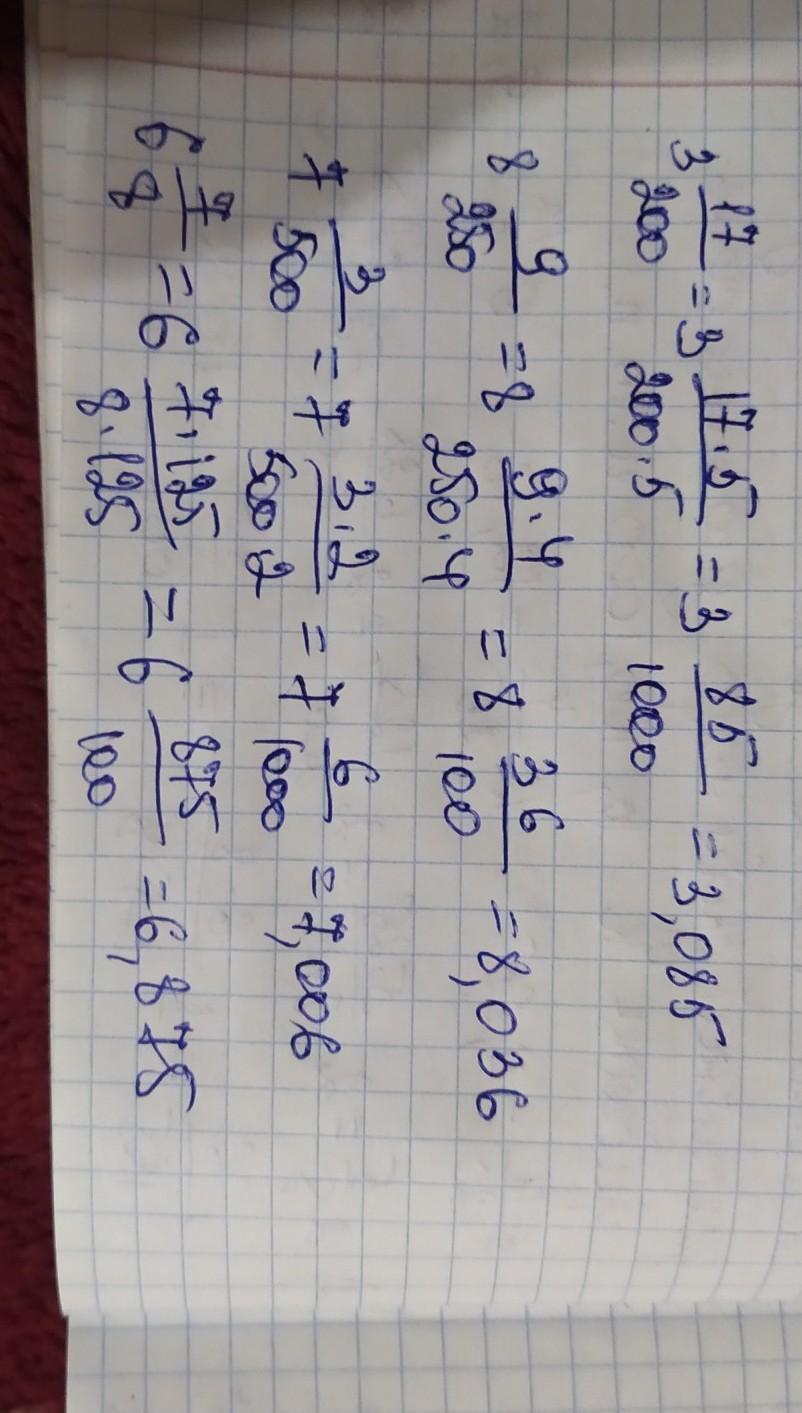 3 17/200 = 3 17·5/200·5 = 3 85/1000 = 3,085
8 9/250 = 8 9·4/250·4 = 8 36/100 = 8,036
7 3/500 = 7 3·2/500 2 = 7 6/1000 = 7,006
6 7/8 = 6 7·125/8·125 = 6 875/100 = 6,875